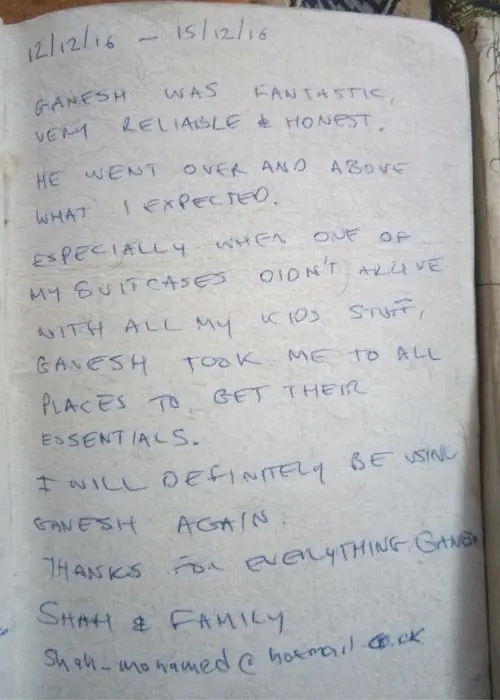 12/12/16 - 15/12/16
GANESH WAS FANTASTIC,
VERY RELIABLE & HONEST.
HE WENT OVER AND ABOVE
WHAT I EXPECTED.
ESPECIALLY WHEN ONE OF
MY SUITCASES DIDN'T ARRIVE
WITH ALL MY KIDS STUFF,
GANESH TOOK ME TO ALL
PLACES TO GET THEIR
ESSENTIALS.
I WILL DEFINITELY BE USING
GANESH AGAIN.
THANKS FOR EVERYTHING GANESH
SHAH & FAMILY
Shah-mohamed@hotmail.co.uk